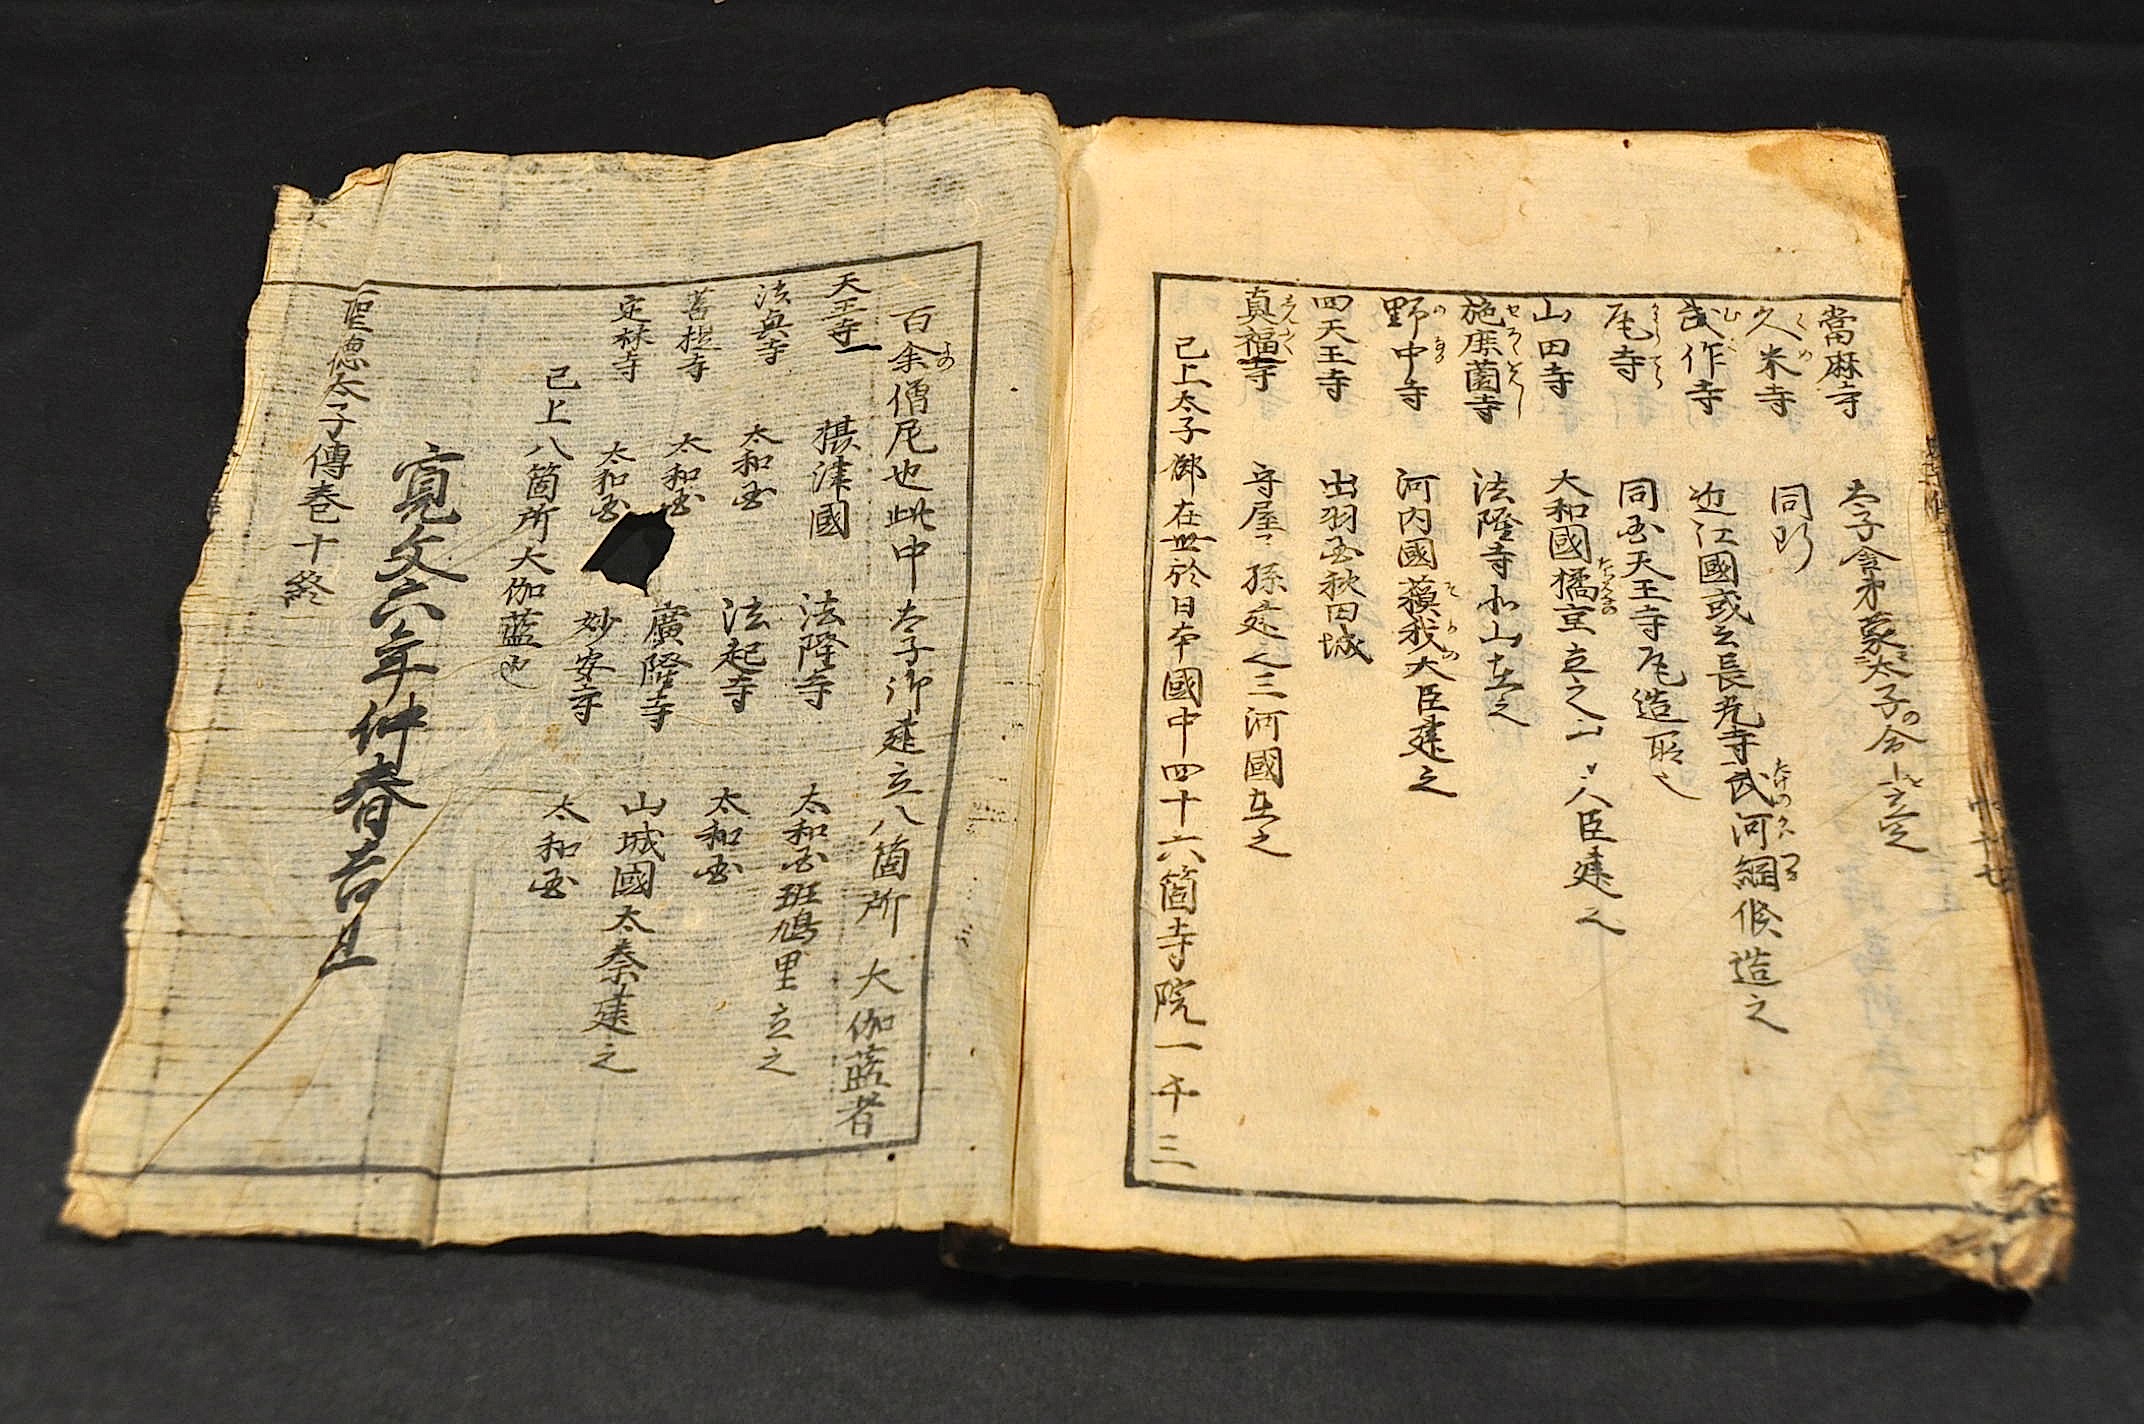 當麻寺 太子舎弟麻呂太子の令建立之
久米寺 同所
武作寺 近江國或云長光寺武河綱候造之
尾寺 同国天王寺尾造
山田寺 大和國橘京立之 山田大臣建之
施麻薗寺 法隆寺 山在之
野中寺 河内國蘓我大臣建之
四天王寺 出羽国秋田城
真福寺 守屋 孫 三河國在之
已上太子御在世於日本國中四十六箇寺院一千三
百余僧尼也此中太子御建立八箇所大伽藍者
天王寺 摂津國 法隆寺 太和国班鳩里立之
法興寺 太和国 法起寺 太和国
菩提寺 太和国 廣隆寺 山城國太秦建之
定林寺 太和国 妙安寺 太和国
已上八箇所大伽藍也
寛文六年仲春吉旦
聖德太子傳卷十終